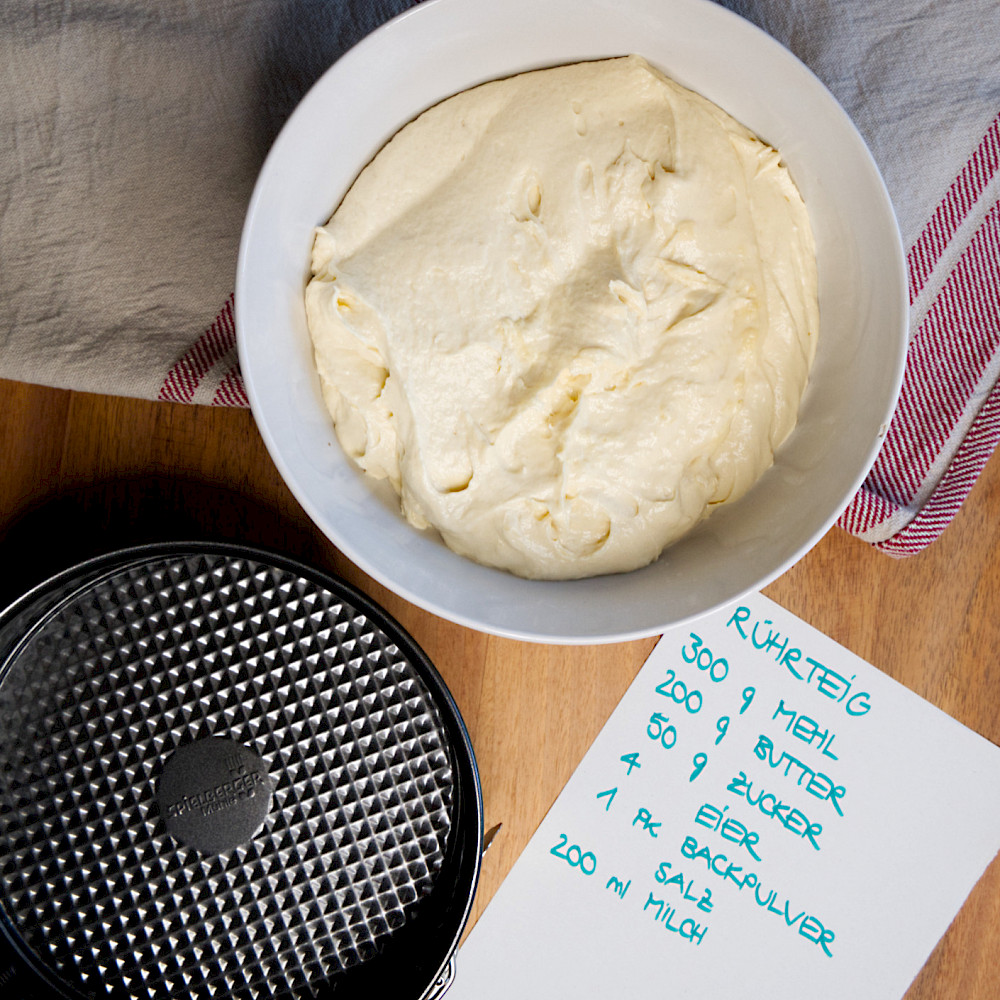 RÜHRTEIG
300 g MEHL
200 g BUTTER
50 g ZUCKER
4 EIER
1 PK BACKPULVER
SALZ
200 ml MILCH
SPIELBERGER